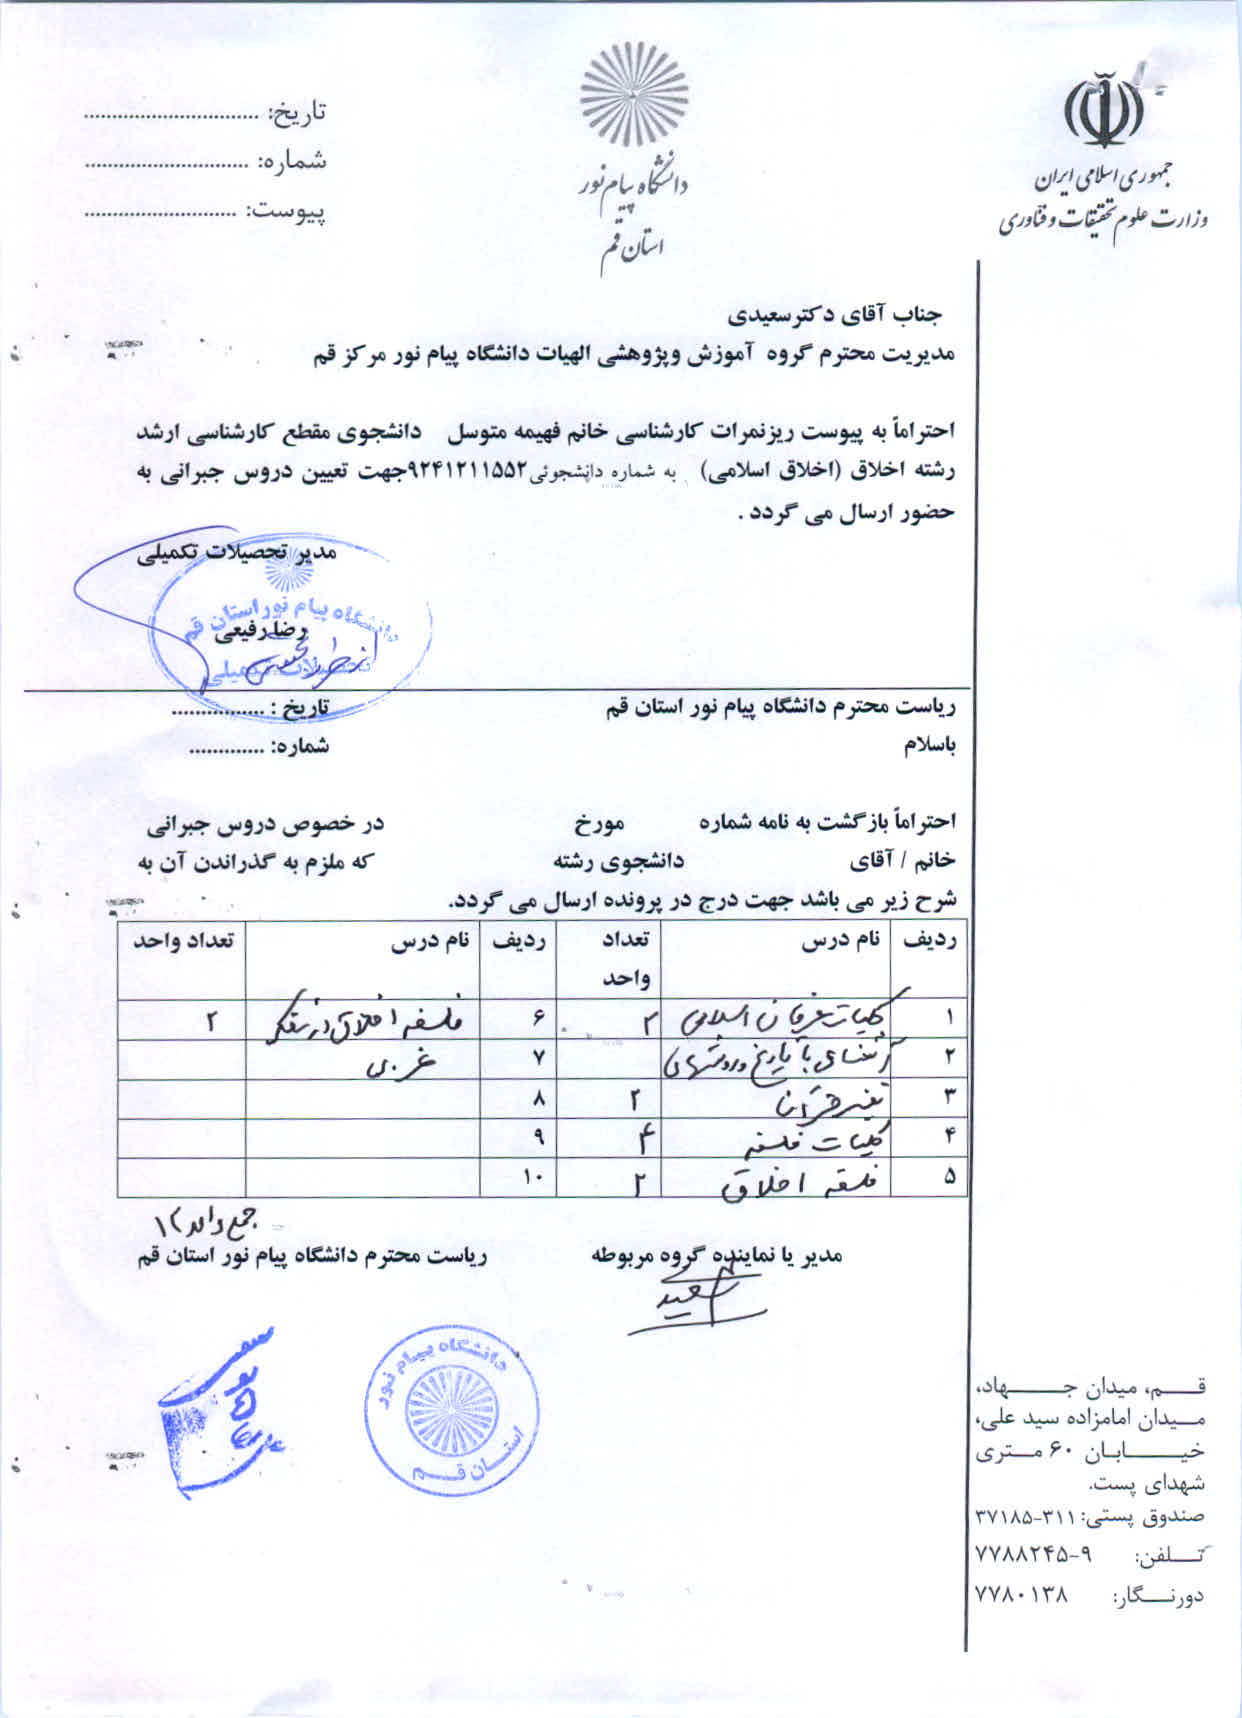 جمهوری اسلامی ایران
وزارت علوم تحقیقات و فناوری
دانشگاه پیام نور
استان قم
تاریخ: ................................
شماره: ................................
پیوست: ................................
جناب آقای دکترسعیدی
مدیریت محترم گروه آموزش وپژوهشی الهیات دانشگاه پیام نور مرکز قم
احتراماً به پیوست ریزنمرات کارشناسی خانم فهیمه متوسل دانشجوی مقطع کارشناسی ارشد
رشته اخلاق (اخلاق اسلامی) به شماره دانشجوئی ۹۲۴۱۲۱۱۵۵۲جهت تعیین دروس جبرانی به
حضور ارسال می گردد .
مدیر تحصیلات تکمیلی
رضا رفیعی
دانشگاه پیام نور استان قم
تحصیلات تکمیلی
ریاست محترم دانشگاه پیام نور استان قم
تاریخ : ................
باسلام
شماره: .............
احتراماً بازگشت به نامه شماره مورخ در خصوص دروس جبرانی
خانم / آقای دانشجوی رشته که ملزم به گذراندن آن به
شرح زیر می باشد جهت درج در پرونده ارسال می گردد.
ردیف نام درس تعداد واحد ردیف نام درس تعداد واحد
۱ کلیات عرفان اسلامی ۲ ۶ فلسفه اخلاق در تفکر ۲
۲ آشنایی با تاریخ و روشهای ۷ غربی
۳ تفسیر قرآن ۲ ۸
۴ کلیات فلسفه ۴ ۹
۵ فلسفه اخلاق ۲ ۱۰
جمع واحد ۱۲
مدیر یا نماینده گروه مربوطه
ریاست محترم دانشگاه پیام نور استان قم
سعیدی
دانشگاه پیام نور
استان قم
قم، میدان جهاد،
میدان امامزاده سید علی،
خیابان ۶۰ متری
شهدای پست.
صندوق پستی: ۳۱۱-۳۷۱۸۵
تلفن: ۹-۷۷۸۸۲۴۵
دورنگار: ۷۷۸۰۱۳۸